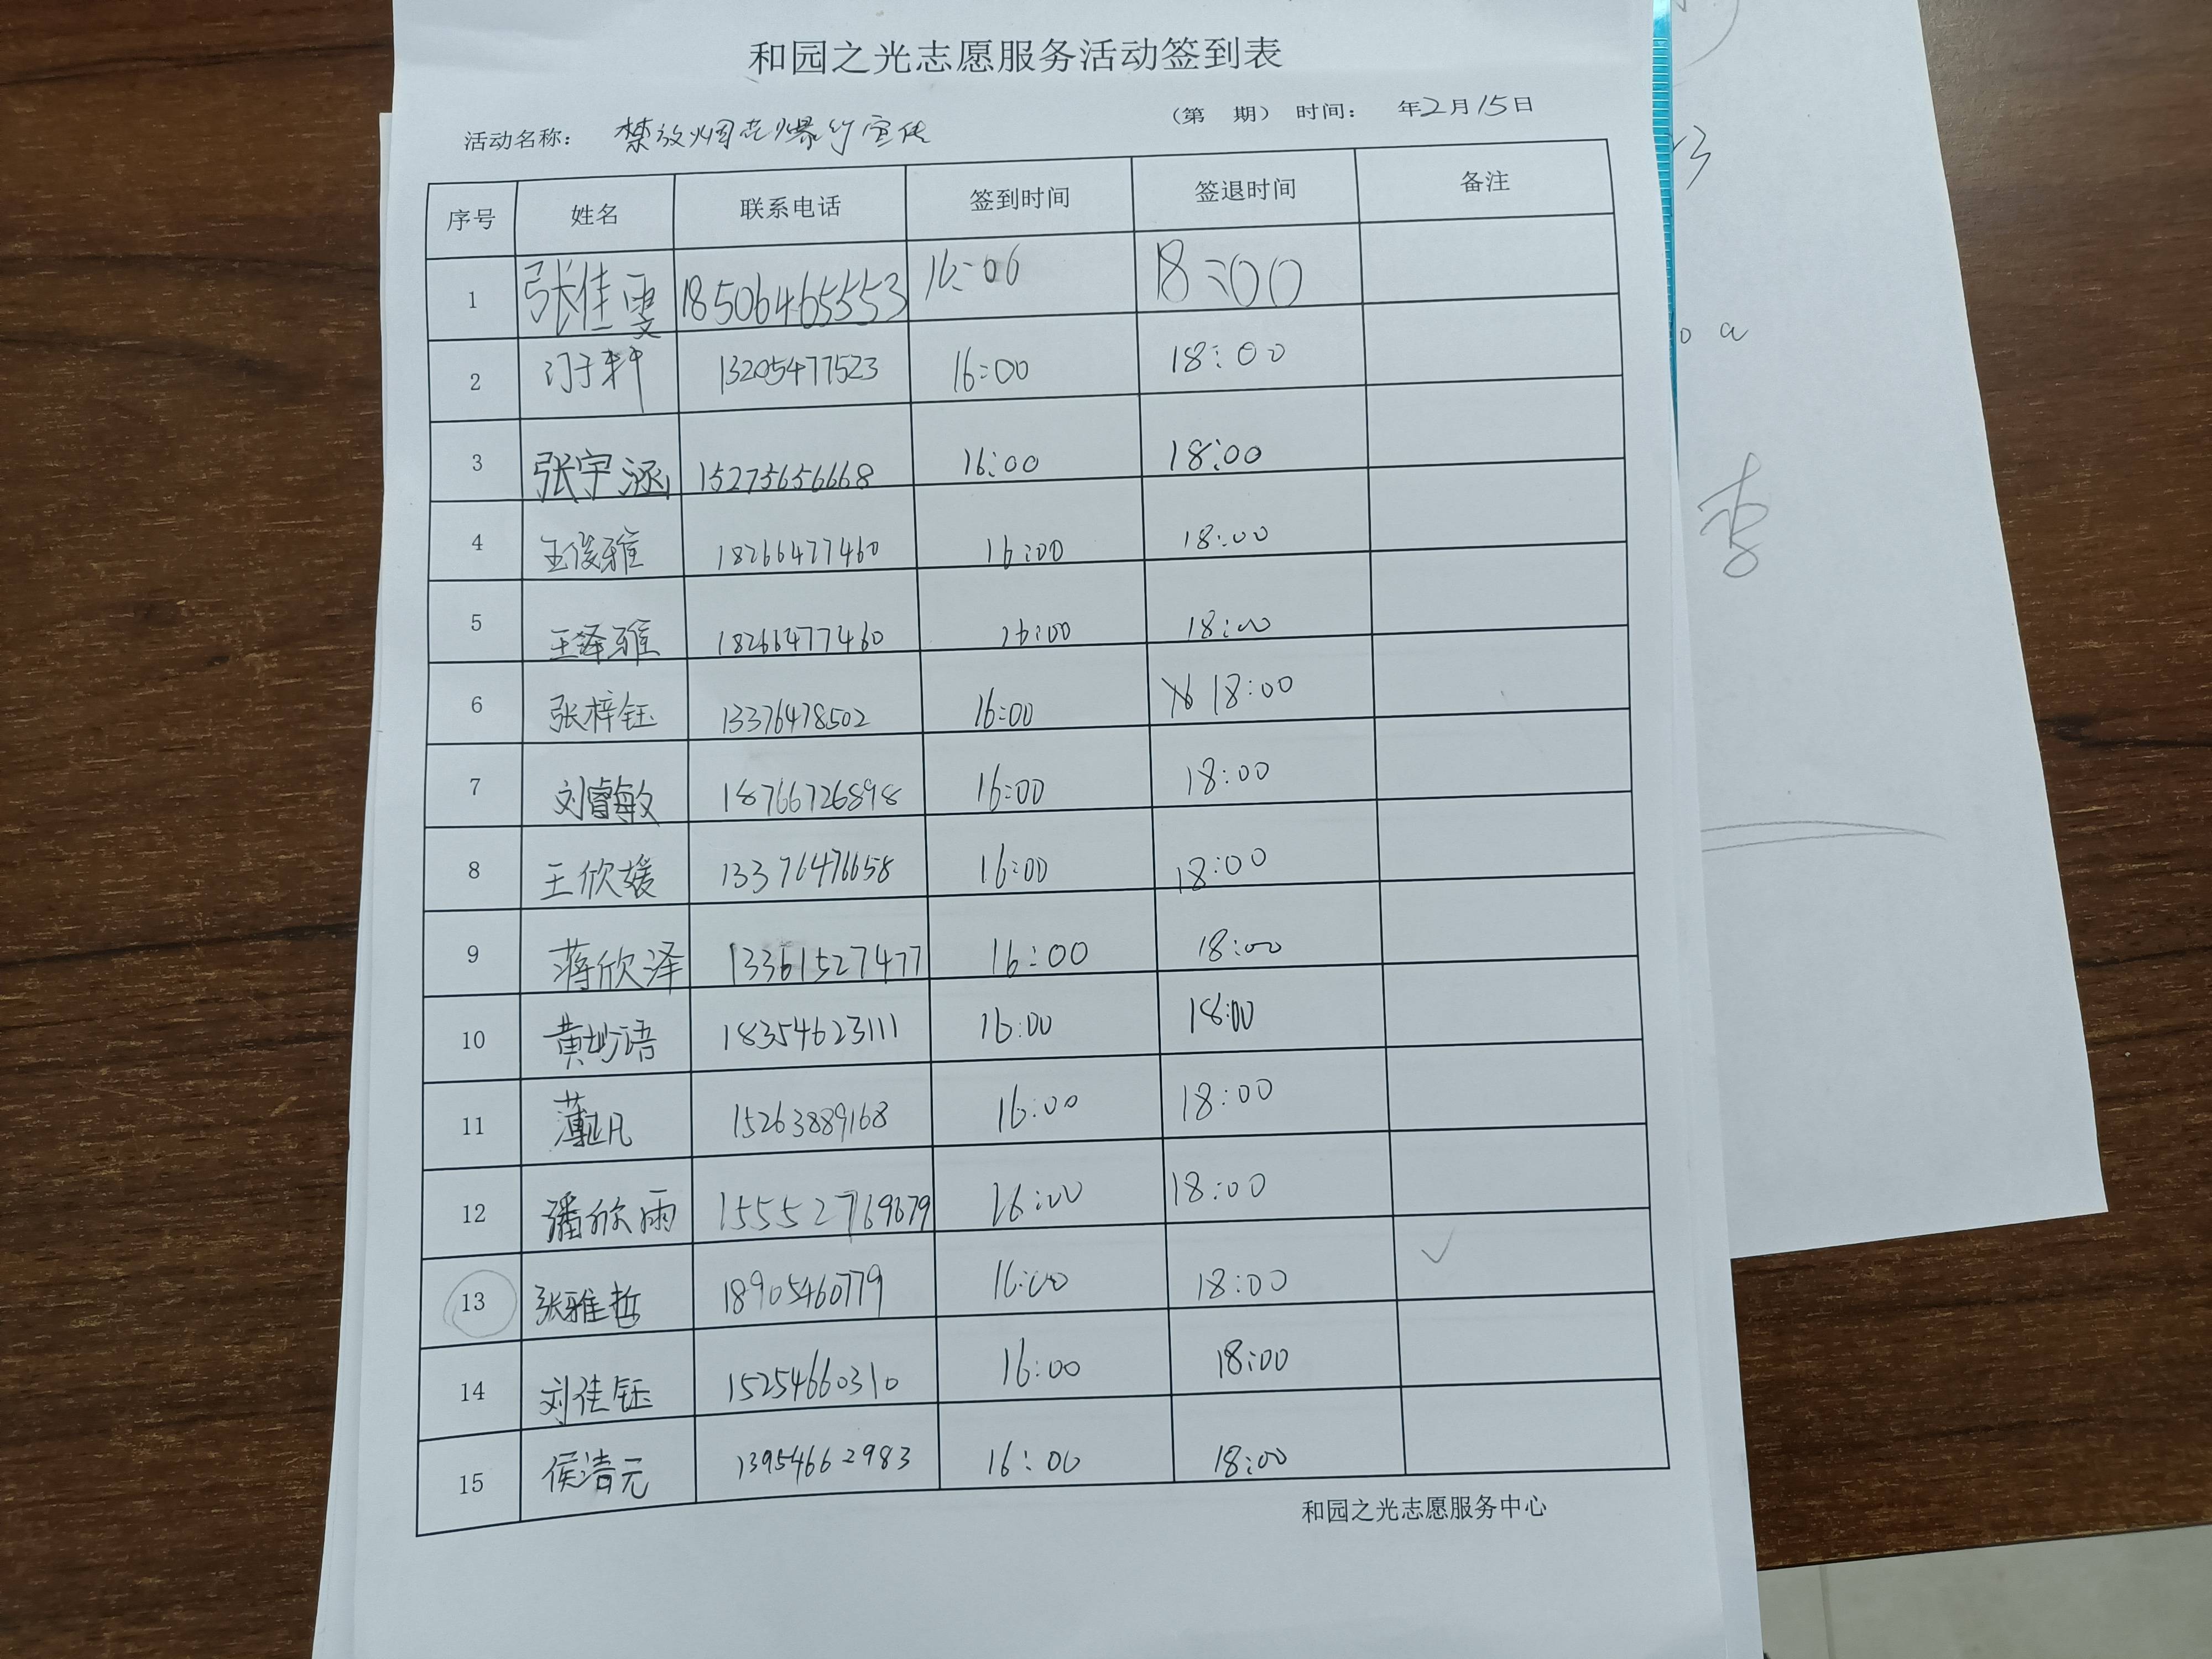 和园之光志愿服务活动签到表
活动名称： 禁放烟花爆竹宣传 （第 期） 时间： 年2月15日
序号 姓名 联系电话 签到时间 签退时间 备注
1 张佳雯 18506465553 16:00 18:00
2 子轩 13205477523 16:00 18:00
3 张宇涵 15275656668 16:00 18:00
4 王俊雅 18266477460 16:00 18:00
5 王泽雅 18266477460 16:00 18:00
6 张梓钰 13376478502 16:00 18:00
7 刘睿敏 18766726898 16:00 18:00
8 王欣媛 13376476658 16:00 18:00
9 蒋欣泽 13361527477 16:00 18:00
10 黄妙语 18354623111 16:00 18:00
11 薄 凡 15263889168 16:00 18:00
12 潘欣雨 15552769679 16:00 18:00
13 张雅哲 18905460779 16:00 18:00 ✓
14 刘佳钰 15254660310 16:00 18:00
15 侯清元 13954662983 16:00 18:00
和园之光志愿服务中心
李